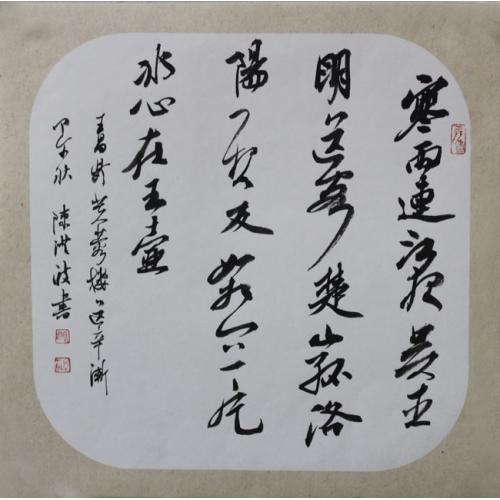 寒雨連江夜吴平
明送客楚山孤洛
陽亲友如相问一片
冰心在玉壺
王昌龄芙蓉楼送辛漸
甲午秋 陳洪波書